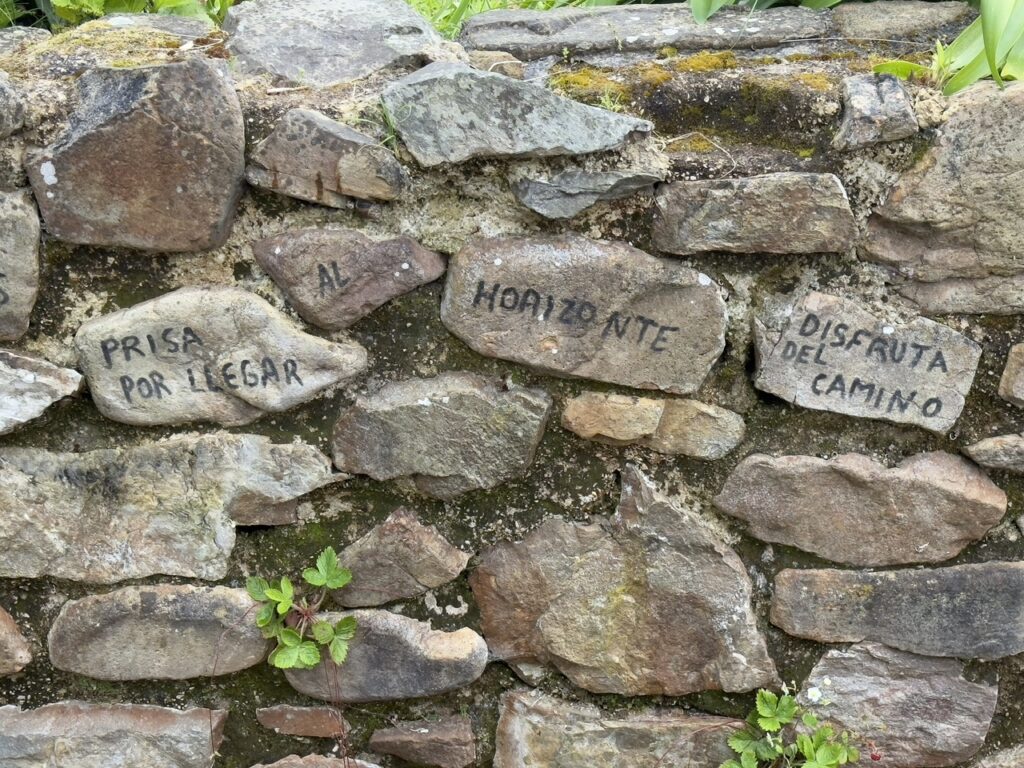 PRISA
POR LLEGAR
AL
HORIZONTE
DISFRUTA
DEL
CAMINO